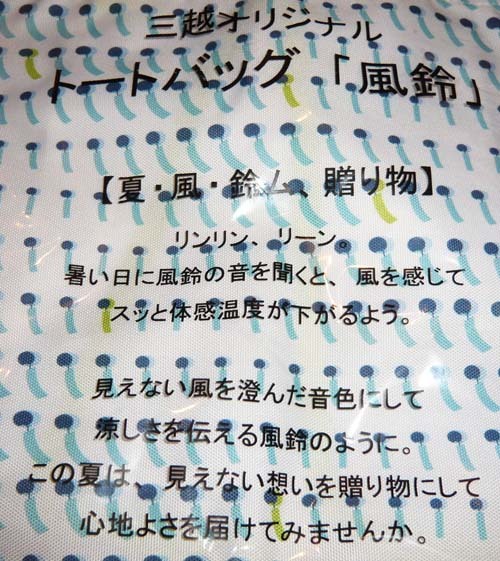 三越オリジナル
トートバッグ「風鈴」
【夏・風・鈴ム、贈り物】
リンリン、リーン。
暑い日に風鈴の音を聞くと、風を感じて
スッと体感温度が下がるよう。
見えない風を澄んだ音色にして
涼しさを伝える風鈴のように。
この夏は、見えない想いを贈り物にして
心地よさを届けてみませんか。